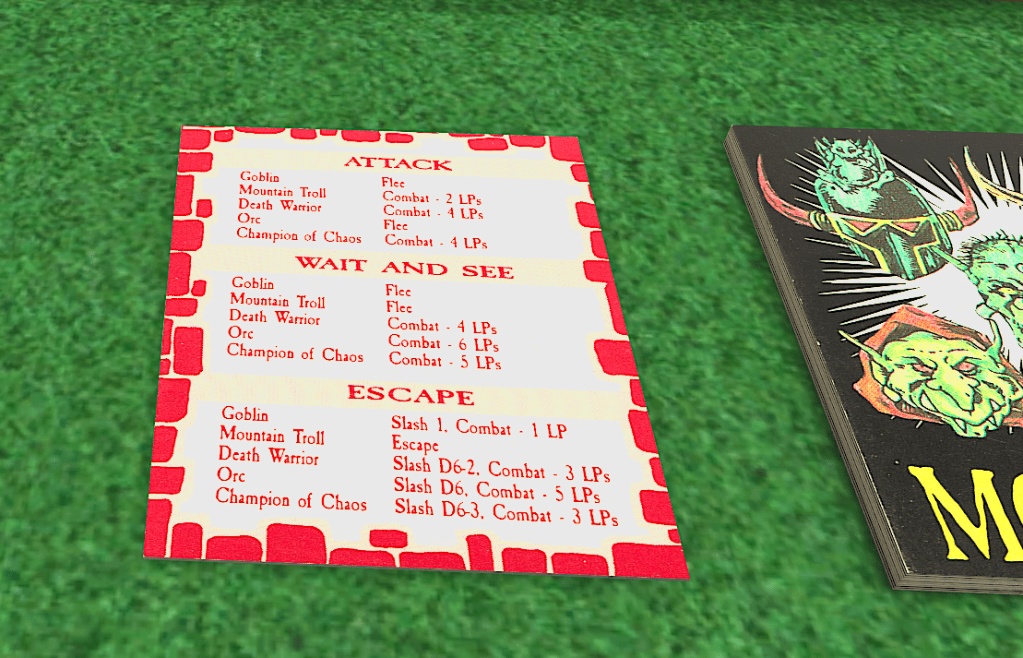 ATTACK
Goblin Flee
Mountain Troll Combat - 2 LPs
Death Warrior Combat - 4 LPs
Orc Flee
Champion of Chaos Combat - 4 LPs
WAIT AND SEE
Goblin Flee
Mountain Troll Flee
Death Warrior Combat - 4 LPs
Orc Combat - 6 LPs
Champion of Chaos Combat - 5 LPs
ESCAPE
Goblin Slash 1, Combat - 1 LP
Mountain Troll Escape
Death Warrior Slash D6-2, Combat - 3 LPs
Orc Slash D6, Combat - 5 LPs
Champion of Chaos Slash D6-3, Combat - 3 LPs